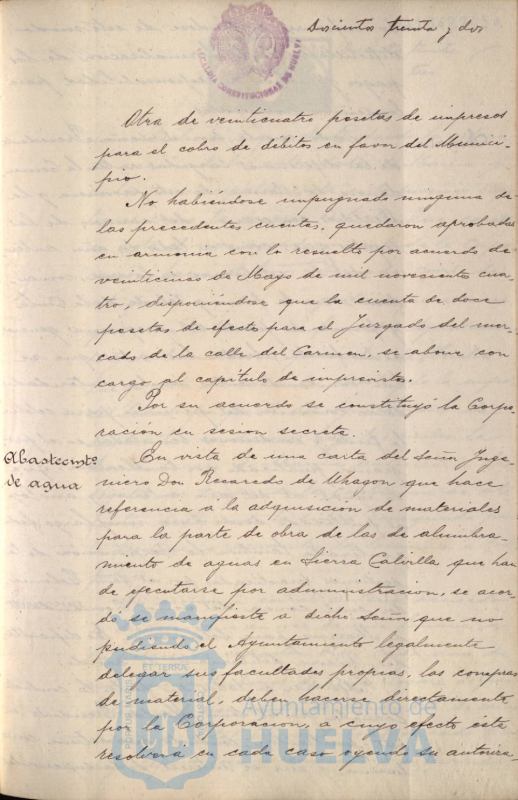 Doscientos treinta y dos
ALCALDIA CONSTITUCIONAL DE HUELVA
Otra de veinticuatro pesetas de impresos
para el cobro de débitos en favor del Munici-
pio.
No habiéndose impugnado ninguna de
las precedentes cuentas, quedaron aprobadas
en armonia con lo resuelto por acuerdo de
veinticinco de Mayo de mil novecientos cua-
tro, disponiéndose que la cuenta de doce
pesetas de efectos para el Juzgado del mer-
cado de la calle del Carmen, se abone con
cargo al capítulo de imprevistos.
Por su acuerdo se constituyó la Corpo-
ración en sesion secreta.
Abastecmto.
de agua
En vista de una carta del Señor Inge-
niero Don Recaredo de Uhagon, que hace
referencia a la adquisicion de materiales
para la parte de obra de las de alumbra-
miento de aguas en Sierra Calvilla que han
de ejecutarse por administracion, se acor-
dó se manifieste a dicho Señor que no
pudiendo el Ayuntamiento legalmente
delegar sus facultades propias, las compras
de material, deben hacerse directamente
por la Corporacion, a cuyo efecto esta
resolverá en cada caso oyendo su autoriza-
Ayuntamiento de
HUELVA